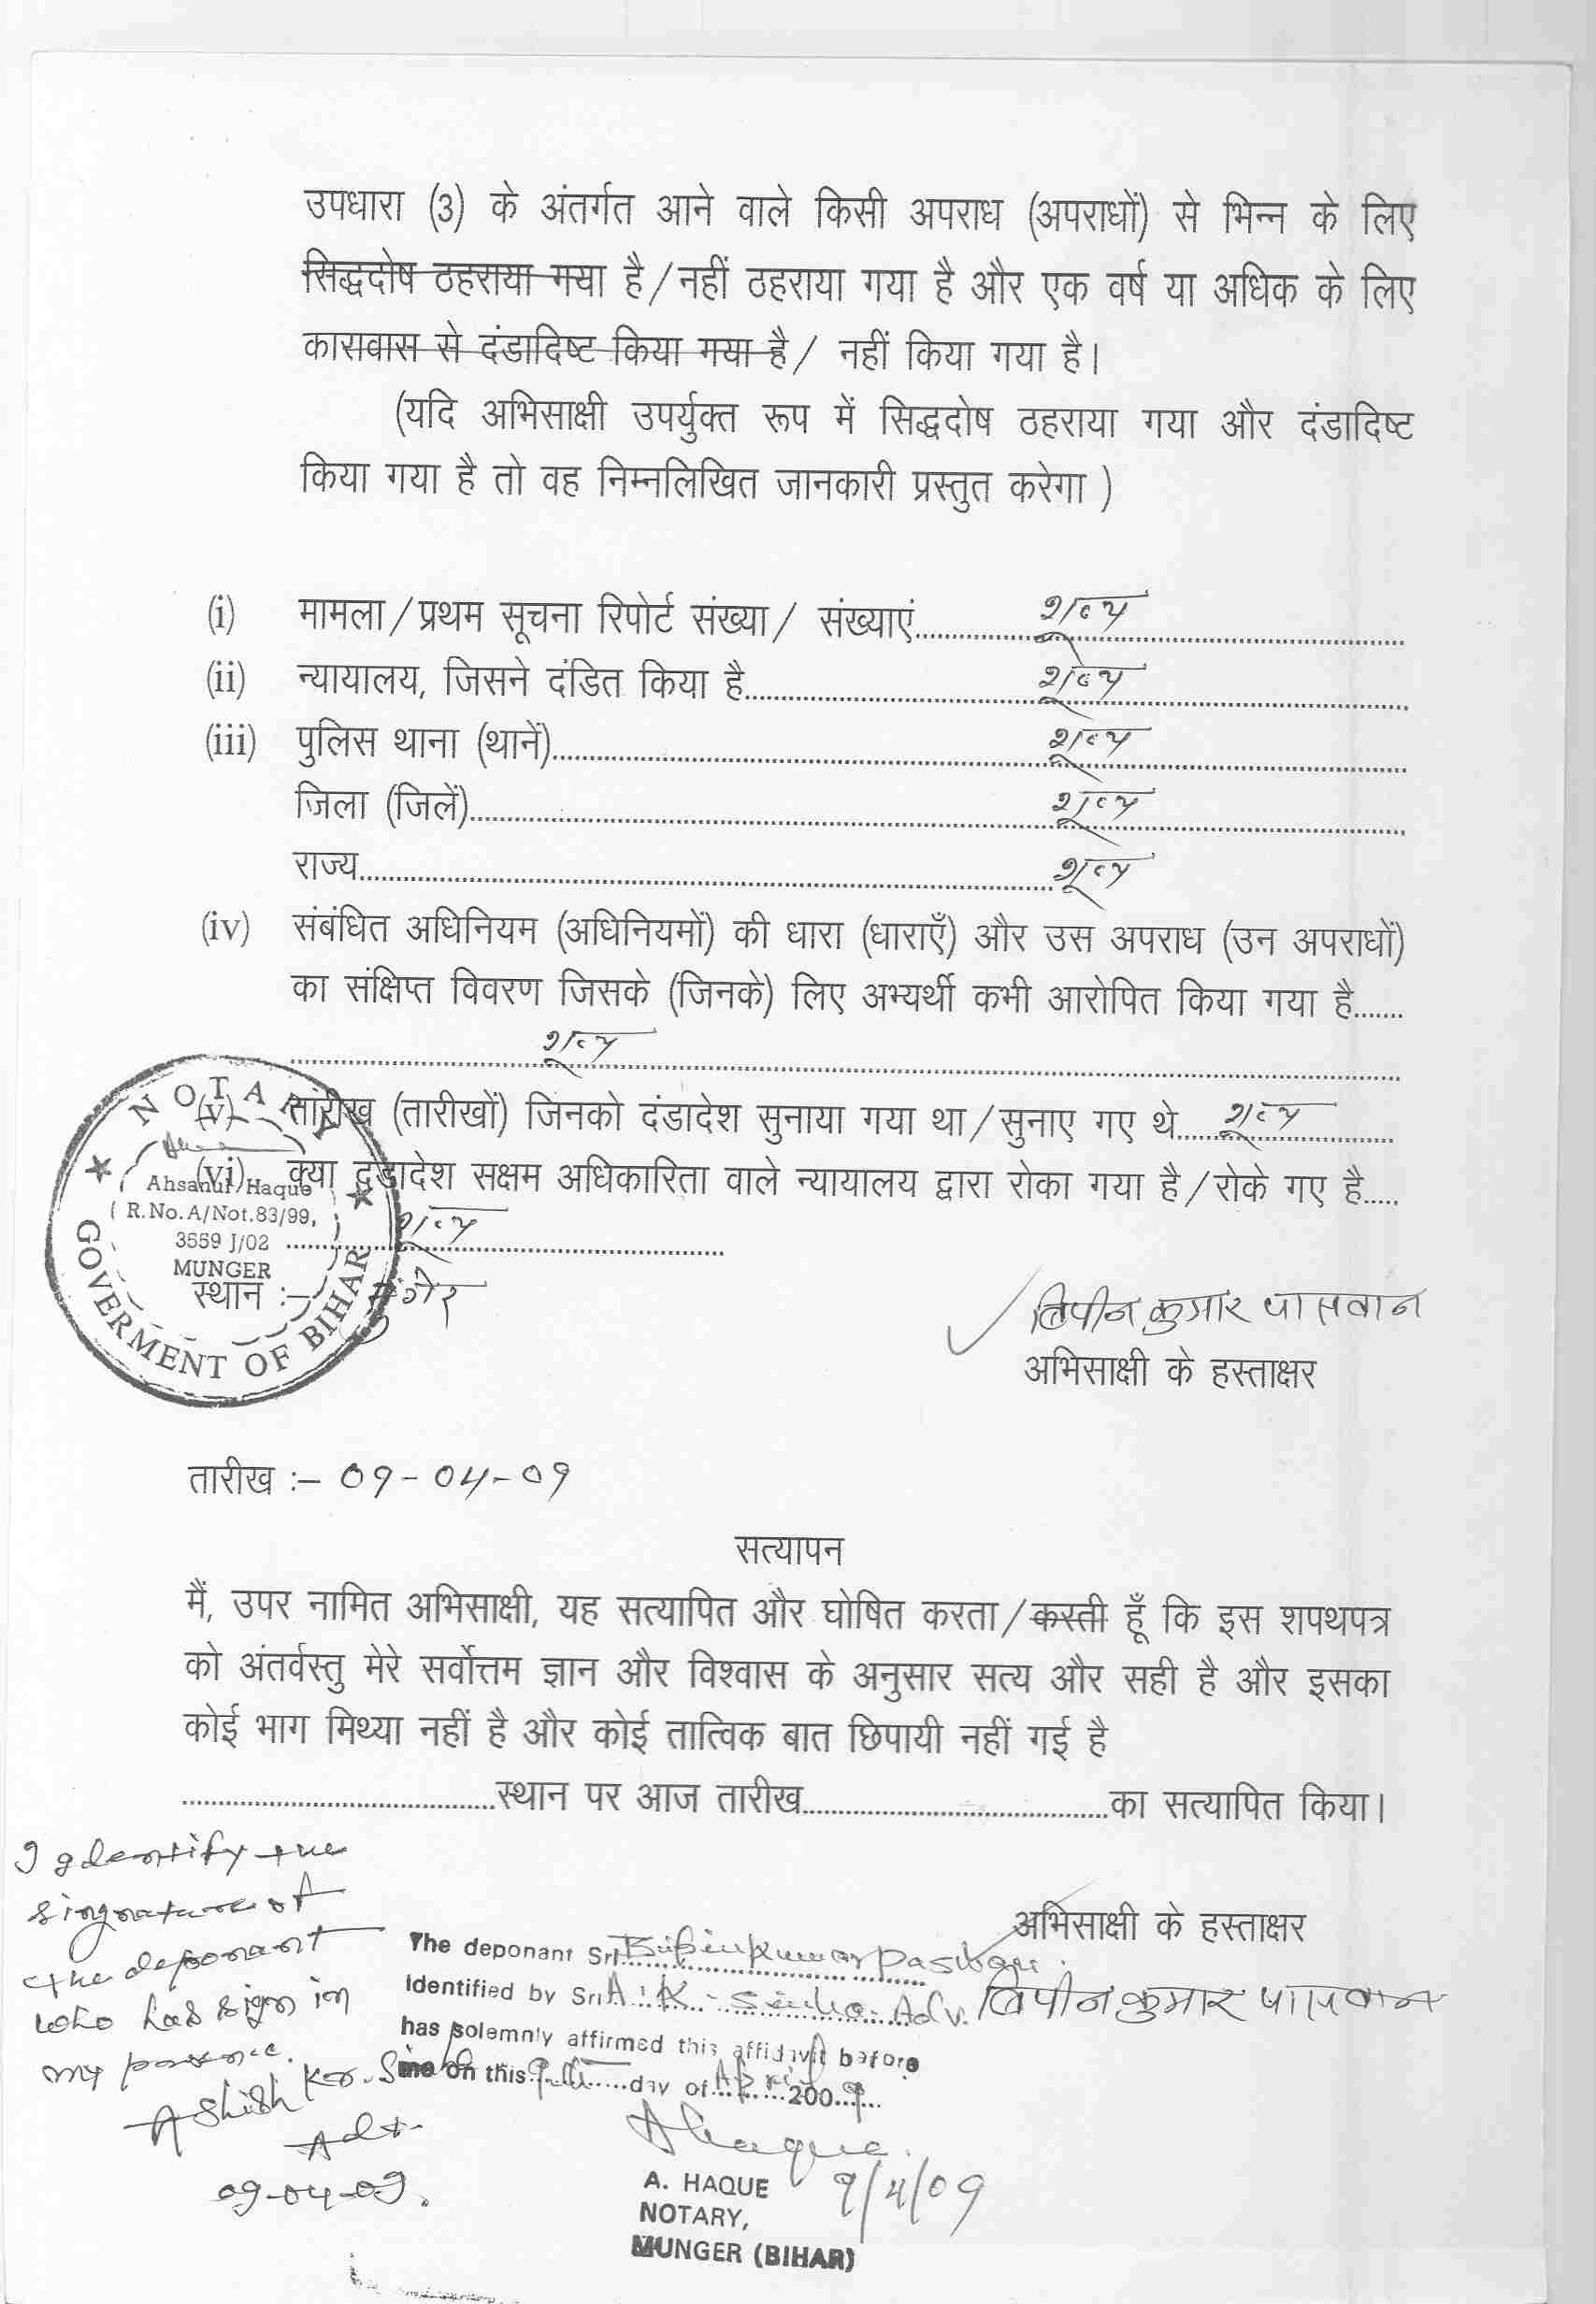 उपधारा (3) के अंतर्गत आने वाले किसी अपराध (अपराधों) से भिन्न के लिए
सिद्धदोष ठहराया गया है/नहीं ठहराया गया है और एक वर्ष या अधिक के लिए
कारावास से दंडादिष्ट किया गया है/ नहीं किया गया है।
(यदि अभिसाक्षी उपर्युक्त रूप में सिद्धदोष ठहराया गया और दंडादिष्ट
किया गया है तो वह निम्नलिखित जानकारी प्रस्तुत करेगा )
(i) मामला/प्रथम सूचना रिपोर्ट संख्या/ संख्याएं........शून्य........
(ii) न्यायालय, जिसने दंडित किया है........शून्य........
(iii) पुलिस थाना (थानें)........शून्य........
जिला (जिलें)........शून्य........
राज्य........शून्य
(iv) संबंधित अधिनियम (अधिनियमों) की धारा (धाराएँ) और उस अपराध (उन अपराधों)
का संक्षिप्त विवरण जिसके (जिनके) लिए अभ्यर्थी कभी आरोपित किया गया है.......
........शून्य........
(v) तारीख (तारीखों) जिनको दंडादेश सुनाया गया था/सुनाए गए थे....शून्य....
(vi) क्या दंडादेश सक्षम अधिकारिता वाले न्यायालय द्वारा रोका गया है/रोके गए है.....
........शून्य........
NOTARY
Ahsanul Haque
R.No.A/Not.83/99,
3559 J/02
MUNGER
GOVERMENT OF BIHAR
स्थान :– मुंगेर
विपीन कुमार पासवान
अभिसाक्षी के हस्ताक्षर
तारीख :– 09-04-09
सत्यापन
मैं, उपर नामित अभिसाक्षी, यह सत्यापित और घोषित करता/करती हूँ कि इस शपथपत्र
को अंतर्वस्तु मेरे सर्वोत्तम ज्ञान और विश्वास के अनुसार सत्य और सही है और इसका
कोई भाग मिथ्या नहीं है और कोई तात्विक बात छिपायी नहीं गई है
........स्थान पर आज तारीख........का सत्यापित किया।
I Identify the
singnature of
the deponant
who has sign in
my
Ashish Kr. Sinha
Adv.
09-04-09.
अभिसाक्षी के हस्ताक्षर
विपीन कुमार पासवान
The deponant Sri Bipin Kumar Paswan
Identified by Sri A.K. Sinha Adv.
has solemnly affirmed this affidavit before
me on this 9th day of April 2009
AHaque.
9/4/09
A. HAQUE
NOTARY,
MUNGER (BIHAR)